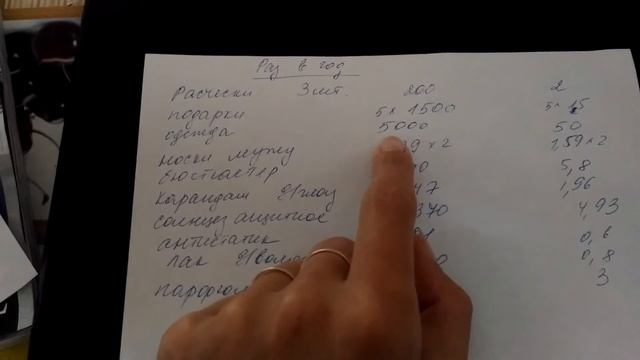 Раз в год
Расчески 3 шт. 200 2
подарки 5 × 1500 5 × 15
одежда 5000 50
носки мужу 9 × 2 1,59 × 2
бюстгалтер 0 5,8
карандаш д/глаз 47 1,96
солнцезащитное 370 4,93
антистатик 0,6
лак д/воло 0 0,8
парфюм 3